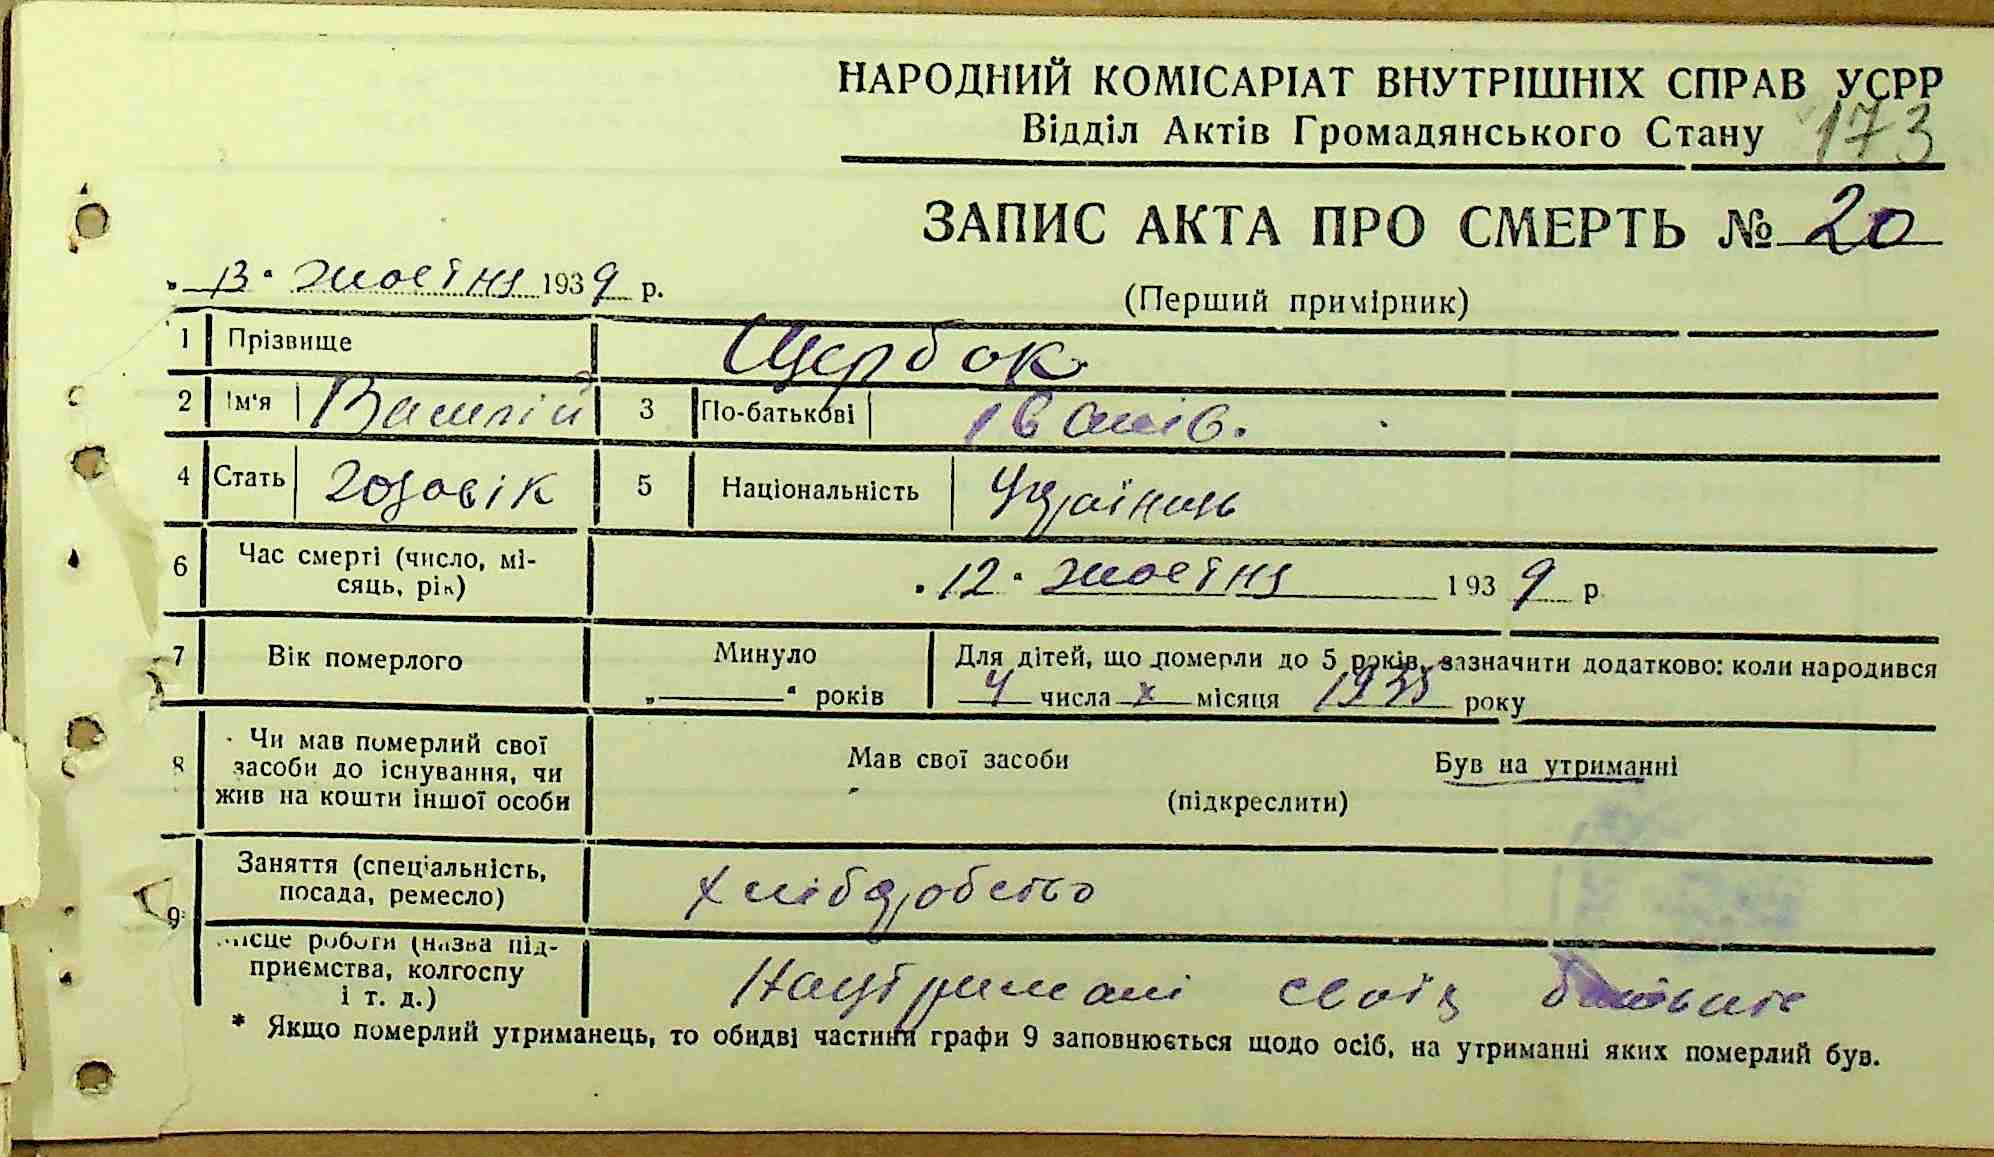 НАРОДНИЙ КОМІСАРІАТ ВНУТРІШНІХ СПРАВ УСРР
Відділ Актів Громадянського Стану 173
ЗАПИС АКТА ПРО СМЕРТЬ № 20
„13“ жовтня 1939 р.
(Перший примірник)
1 Прізвище Щербак
2 Ім'я Василій 3 По-батькові Іванів.
4 Стать чоловік 5 Національність Українець
6 Час смерті (число, мі-
сяць, рік) „12“ жовтня 1939 р
7 Вік померлого Минуло Для дітей, що померли до 5 років, зазначити додатково: коли народився
„ “ років 4 числа X місяця 1935 року
8 Чи мав померлий свої
засоби до існування, чи
жив на кошти іншої особи
Мав свої засоби Був на утриманні
(підкреслити)
9 Заняття (спеціальність,
посада, ремесло) хліборобство
Місце роботи (назва під-
приємства, колгоспу
і т. д.) На утримані своїх батьків
* Якщо померлий утриманець, то обидві частини графи 9 заповнюється щодо осіб, на утриманні яких померлий був.